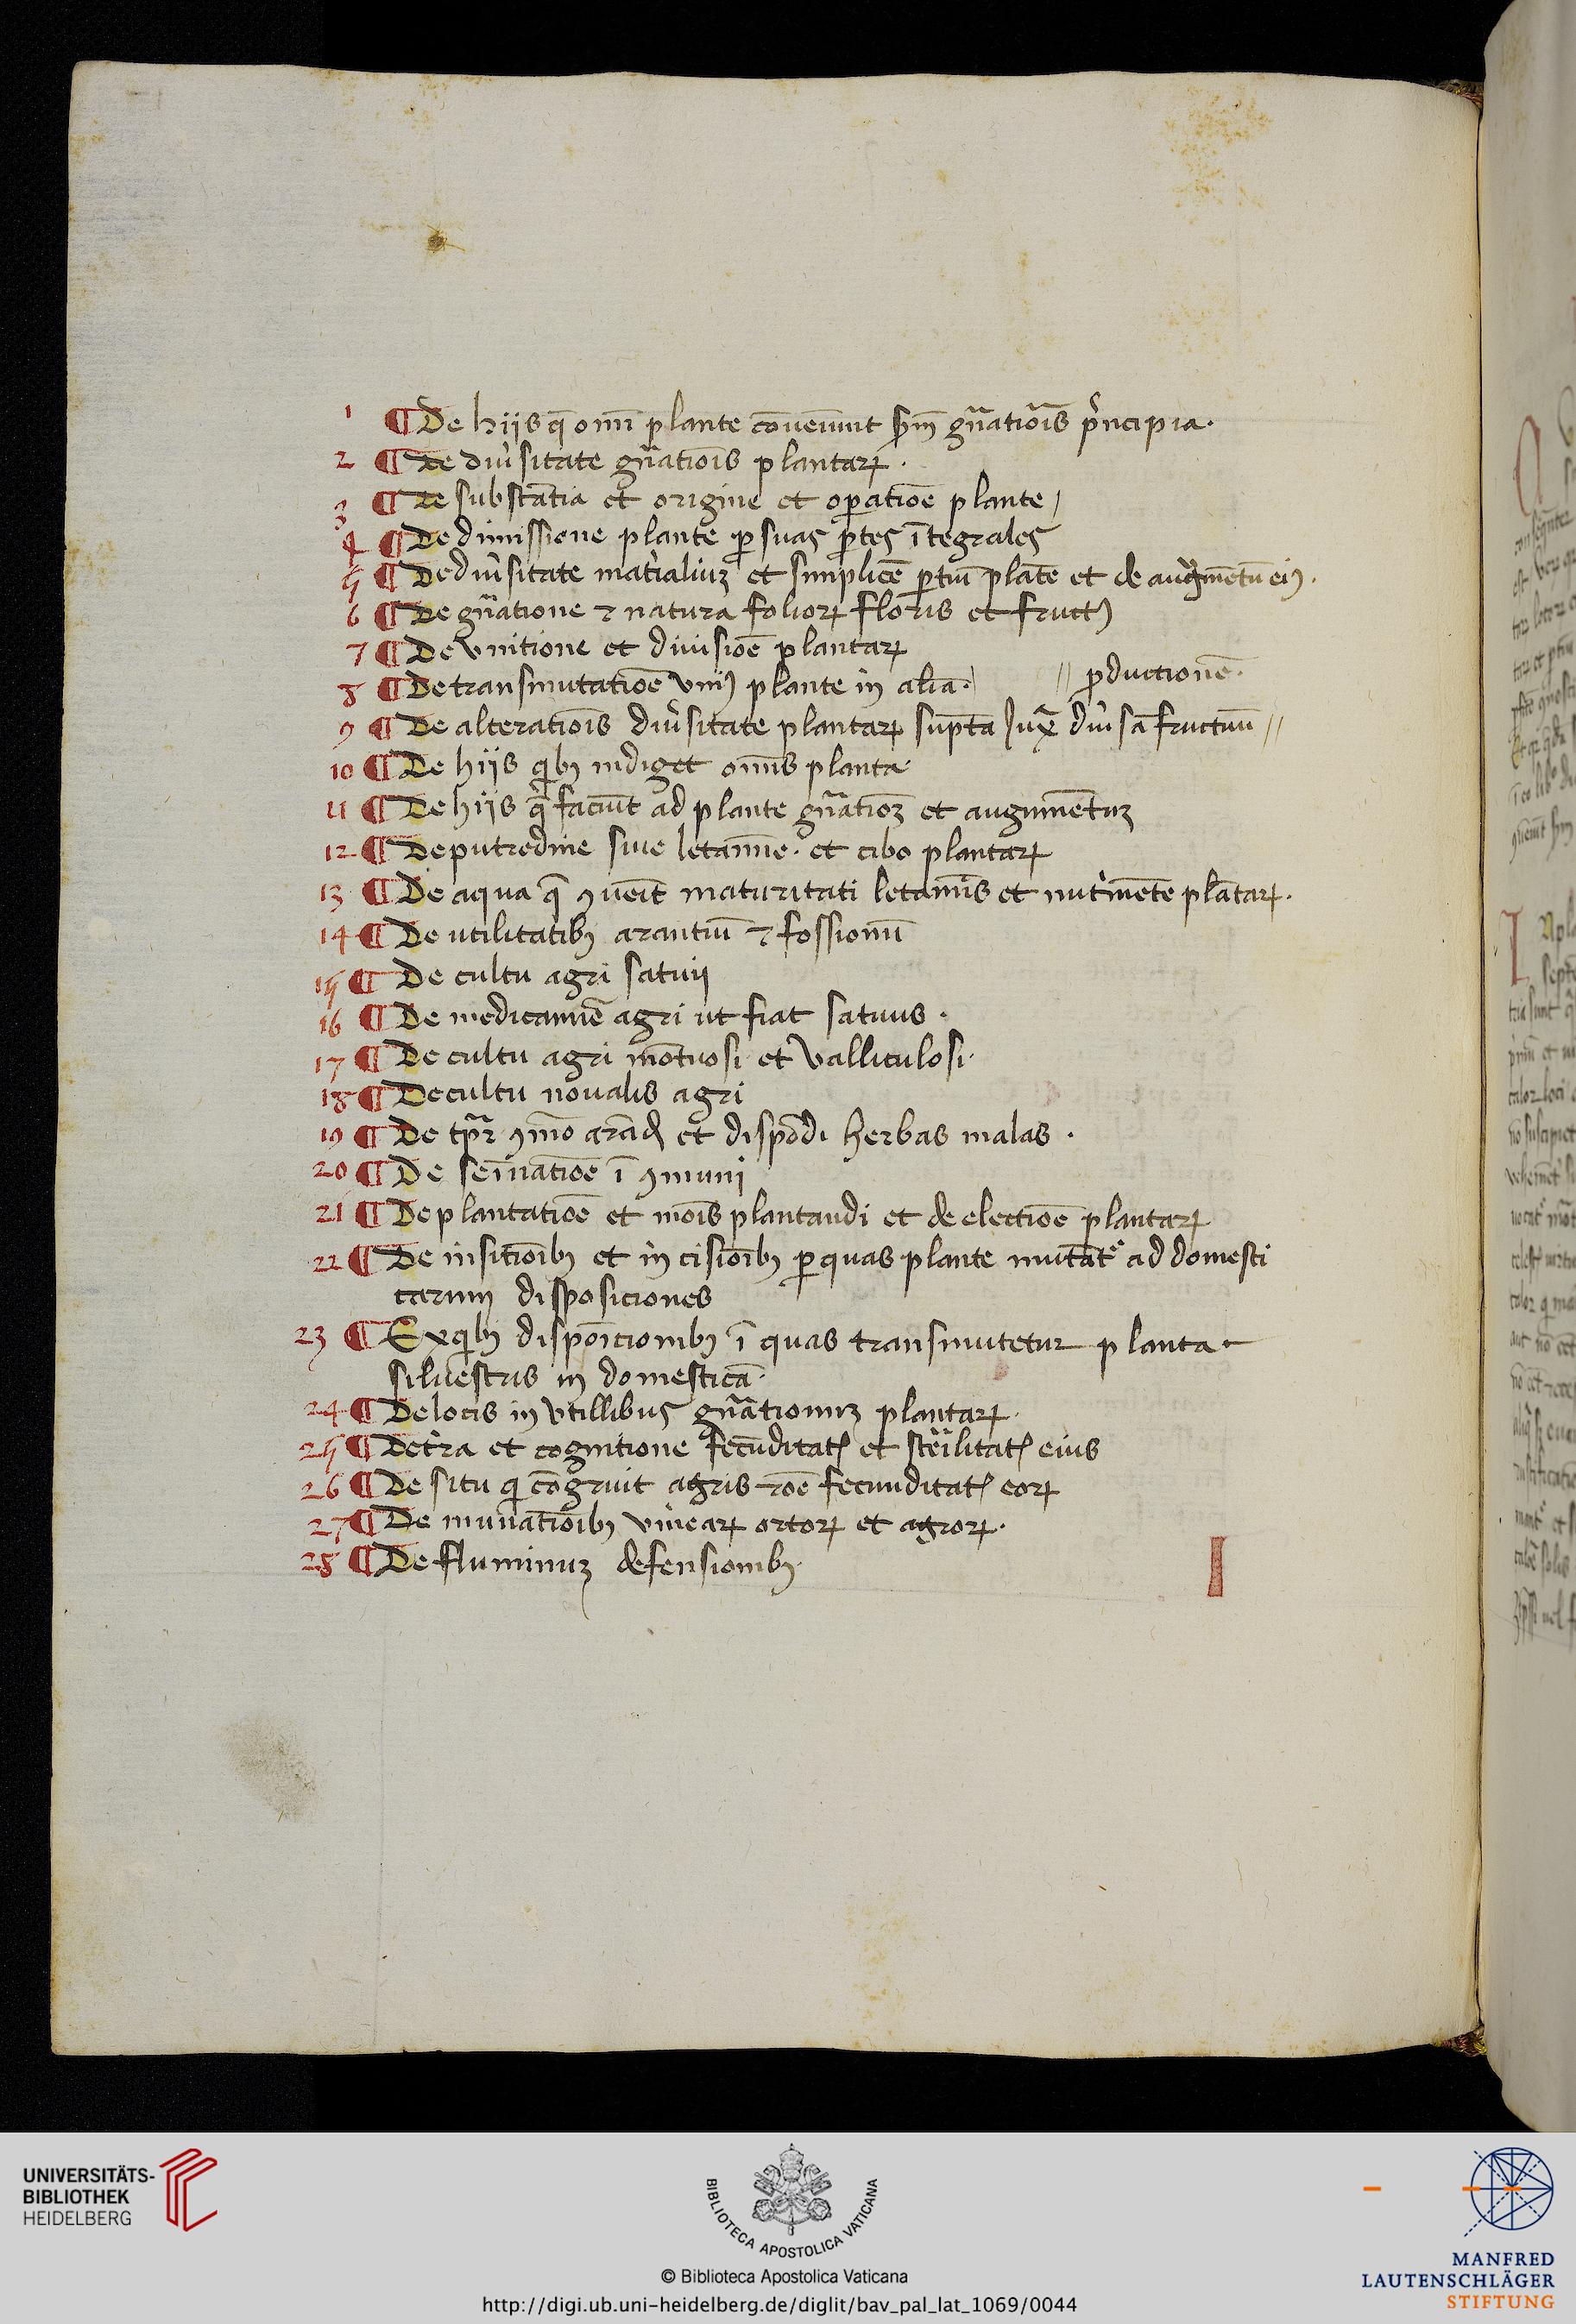 1 ¶ De hijs q̄ om̄i plante cōveniunt sm̄ gn̄atiōis pⁱncipia.
2 ¶ De diu̓sitate gn̄atiōis plantaꝝ.
3 ¶ De substātia et origine et oꝑatiōe plante
4 ¶ De diuissione plante ꝑ suas ꝑtes ītegrales
5 ¶ De diu̓sitate mat̓ialiuꝫ et simplicē ꝑtiū plāte et de augmētū eiꝰ.
6 ¶ De gn̄atione ⁊ natura folioꝝ floris et fructꝰ
7 ¶ De vnitione et diuisiōe plantaꝝ
8 ¶ De transmutatiōe vniꝰ plante in aliā. // ꝓductionē.
9 ¶ De alteratiōis diu̓sitate plantaꝝ supta Iuxᵃ diu̓sā fructuū //
10 ¶ De hijs qⁱbꝫ indiget om̄is planta.
11 ¶ De hijs q̄ faciūt ad plante gn̄atiōꝫ et augumētuꝫ
12 ¶ De putredine siue letamīe. et cibo plantaꝝ
13 ¶ De aqua q̄ ꝯuēit maturitati letamīs et nutⁱmēte plātaꝝ.
14 ¶ De utilitatibꝫ arantiū ⁊ fossionū
15 ¶ De cultu agri satiuj
16 ¶ De medicamīe agri ut fiat satiuus.
17 ¶ De cultu agri mōtuosi et valliculosi.
18 ¶ De cultu noualis agri
19 ¶ De tp̄r ꝯmō arād et dispōdi herbas malas.
20 ¶ De semīatiōe ī ꝯmuni
21 ¶ De plantatiōe et mōis plantandi et de electiōe plantaꝝ
22 ¶ De insitiōibꝫ et in cisiōibꝫ ꝑ quas plante mutāt᷑ ad domesti
carum disposiciones
23 ¶ Ex qⁱbꝫ dispōitionibꝫ ī quas transmutetur planta
siluestris in domesticā.
24 ¶ De locis in vtillibus gn̄ationuꝫ plantaꝝ.
25 ¶ De t̓ra et cognitione fecūditatꝭ et st̓ilitatꝭ eius
26 ¶ De situ qⁱ cōgruit agris rōe fecunditatꝭ eoꝝ
27 ¶ De muniatiōibꝫ vineaꝝ ortoꝝ et agroꝝ.
28 ¶ De fluminuꝫ defensionibꝫ.
I
UNIVERSITÄTS-
BIBLIOTHEK
HEIDELBERG
BIBLIOTECA APOSTOLICA VATICANA
© Biblioteca Apostolica Vaticana
http://digi.ub.uni-heidelberg.de/diglit/bav_pal_lat_1069/0044
MANFRED
LAUTENSCHLÄGER
STIFTUNG